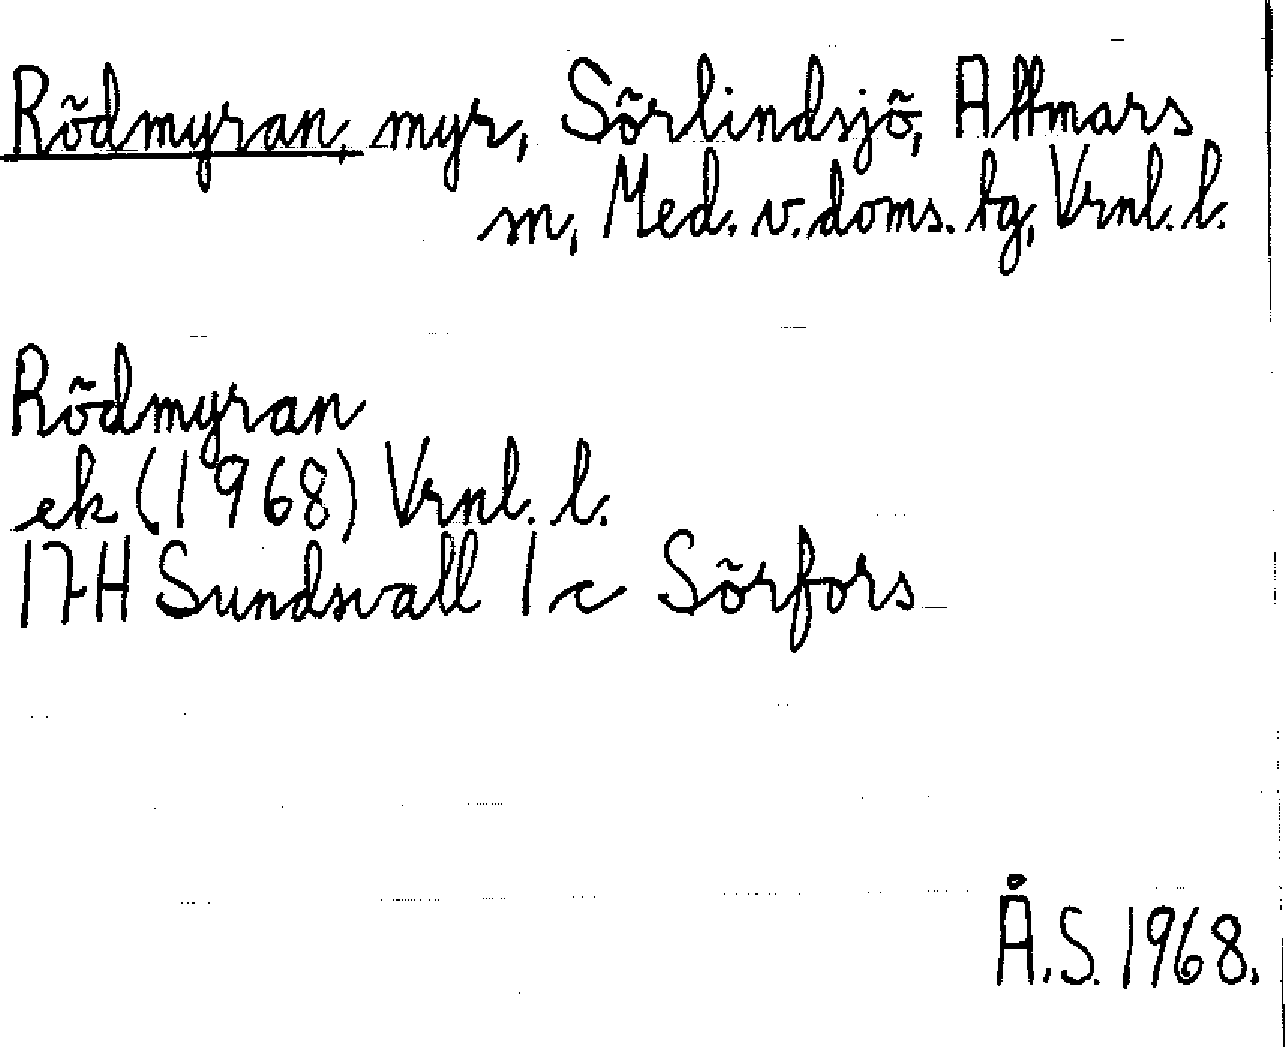 Rödmyran, myr, Sörlindsjö, Attmars
sn, Med. v. doms. tg, Vrnl. l.
Rödmyran
ek (1968) Vrnl. l.
17H Sundsvall 1 c Sörfors
Å.S. 1968.